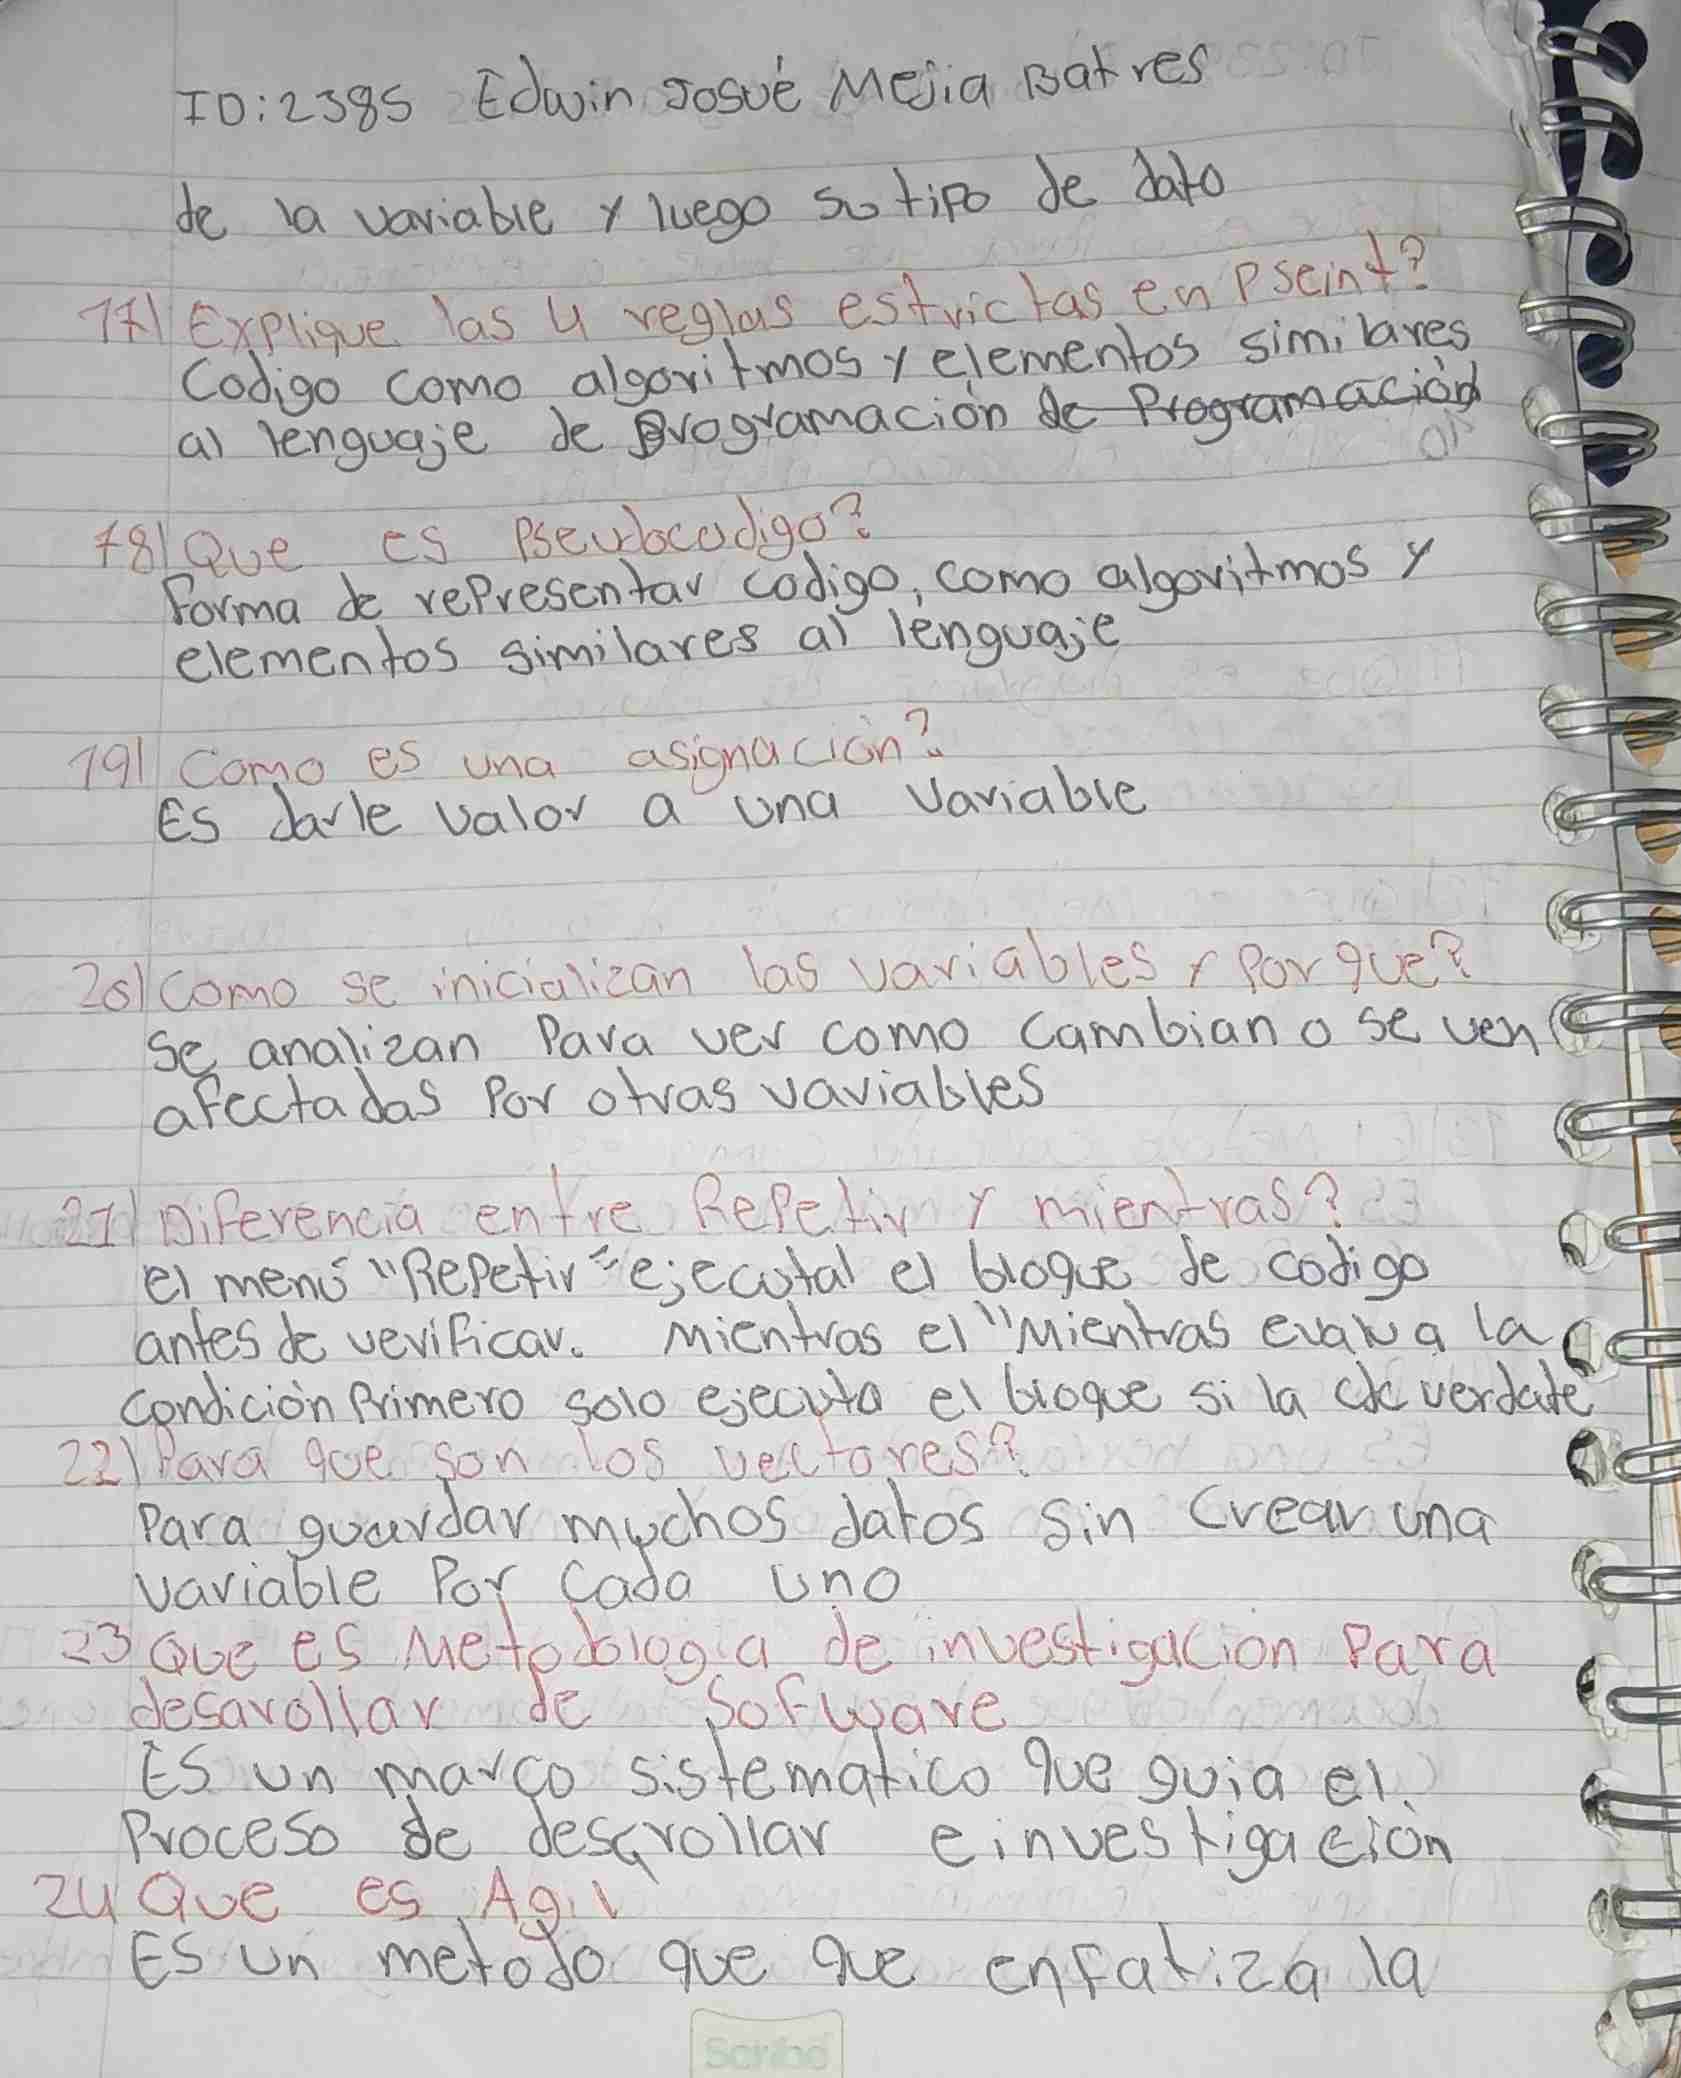 ID:2385 Edwin Josué Mejia Batres
de la variable y luego su tipo de dato
17) Explique las 4 reglas estrictas en Pseint?
Codigo como algoritmos y elementos similares
al lenguaje de programación de Programación
18) Que es Pseudocodigo?
Forma de representar codigo, como algoritmos y
elementos similares al lenguaje
19) Como es una asignación?
Es darle valor a una variable
20) Como se inicializan las variables y Por que?
Se analizan Para ver como cambian o se ven
afectadas Por otras variables
21) Diferencia entre Repetir y mientras?
el menú "Repetir" ejecutal el bloque de codigo
antes de verificar. Mientras el "Mientras evalua la
condición Primero solo ejecuta el bloque si la de verdate
22) Para que son los vectores?
Para guardar muchos datos sin crear una
variable Por cada uno
23 Que es Metodologia de investigacion Para
desarollar de Sofware
Es un marco sistematico que guia el.
Proceso de desarrollar e investigación
24 Que es Agil
Es un metodo que que enfatiza la
Scribe